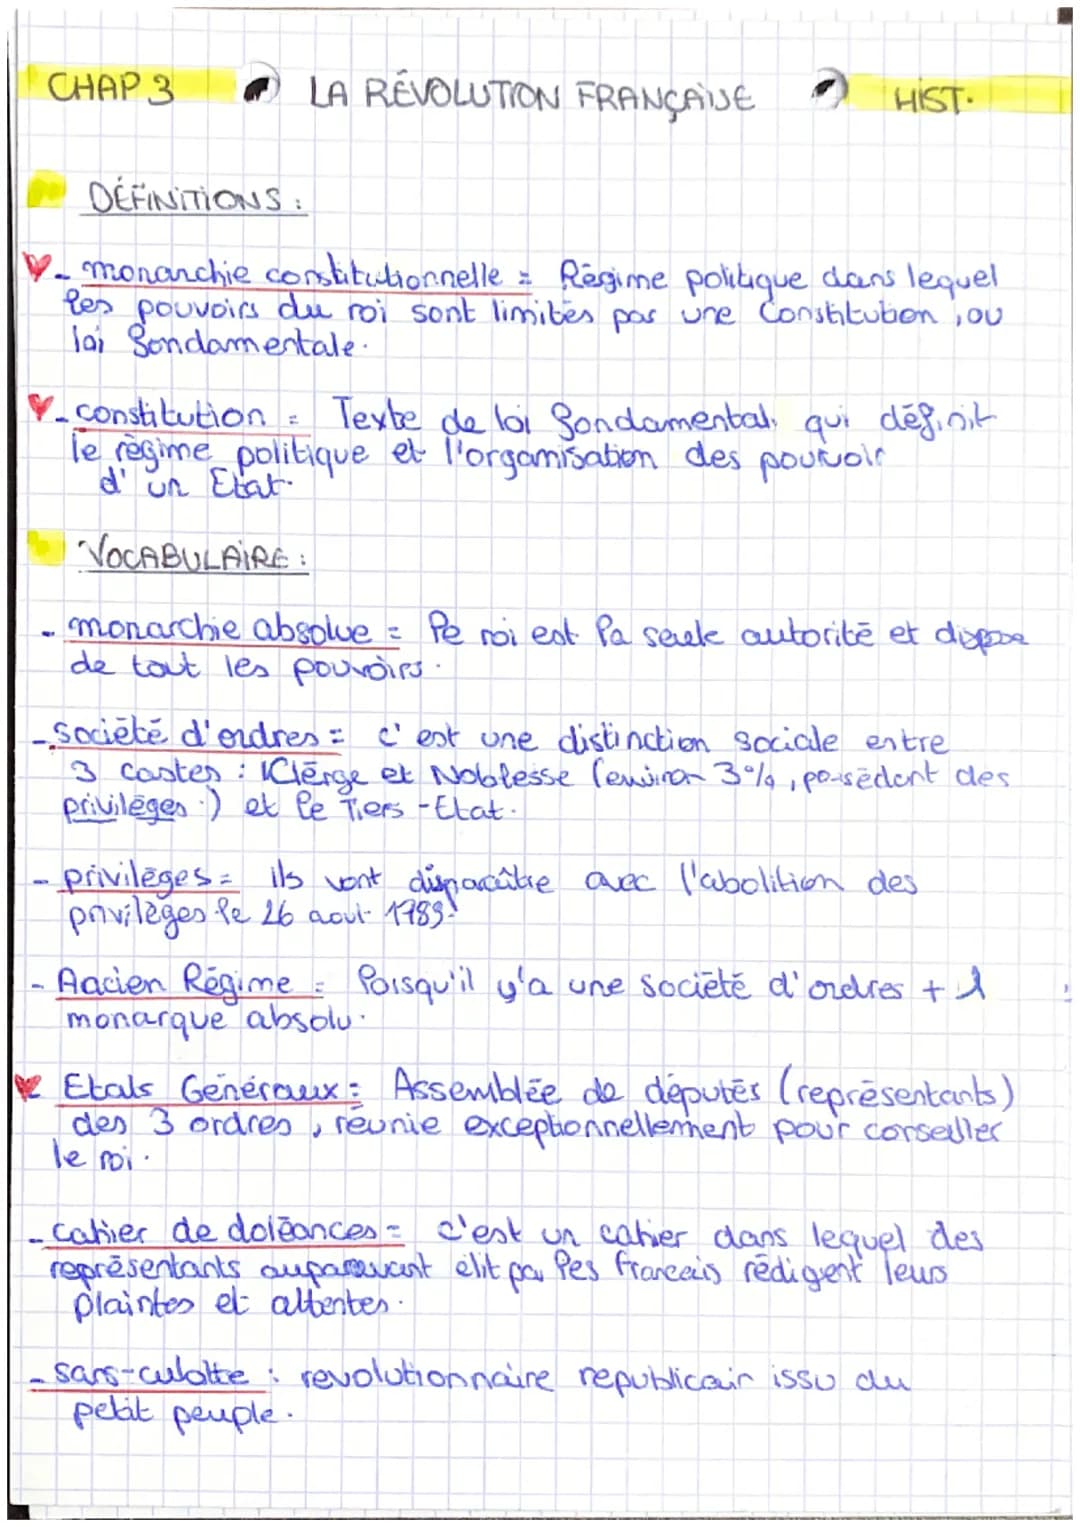 CHAP 3 LA RÉVOLUTION FRANÇAISE HIST.
DÉFINITIONS :
- monarchie constitutionnelle = Régime politique dans lequel
les pouvoirs du roi sont limités par une Constitution, ou
loi fondamentale.
- constitution = Texte de loi fondamental qui définit
le régime politique et l'organisation des pouvoir
d'un Etat.
VOCABULAIRE :
- monarchie absolue = le roi est la seule autorité et dispose
de tout les pouvoirs.
- société d'ordres = c'est une distinction sociale entre
3 castes : Clérge et Noblesse (environ 3%, possédent des
privilèges.) et le Tiers-Etat.
- privilèges = ils vont disparaître avec l'abolition des
privilèges le 26 aout 1789.
- Ancien Régime = lorsqu'il y'a une société d'ordres + 1
monarque absolu.
Etats Généraux = Assemblée de députés (représentants)
des 3 ordres, réunie exceptionnellement pour conseiller
le roi.
- cahier de doléances = c'est un cahier dans lequel des
représentants auparavant élit par les francais rédigent leurs
plaintes et attentes.
- sans-culotte : revolutionnaire republicain issu du
petit peuple.